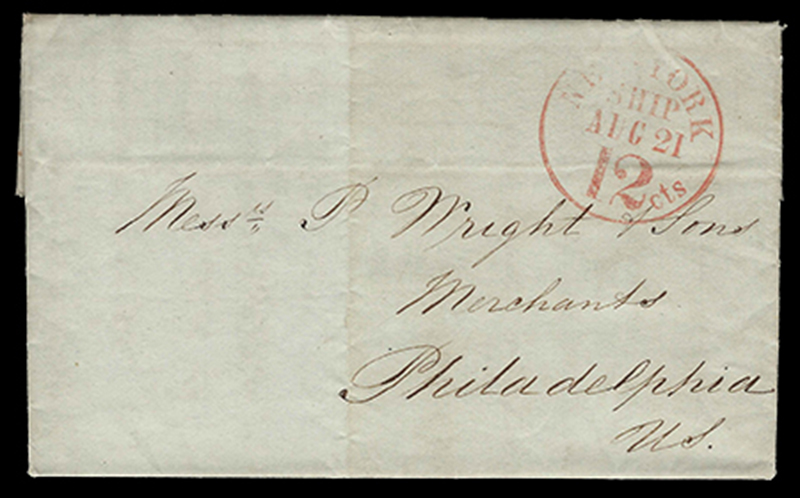 NEW YORK
SHIP
AUG 21
12 cts
Messrs. P Wright & Sons
Merchants
Philadelphia
US.